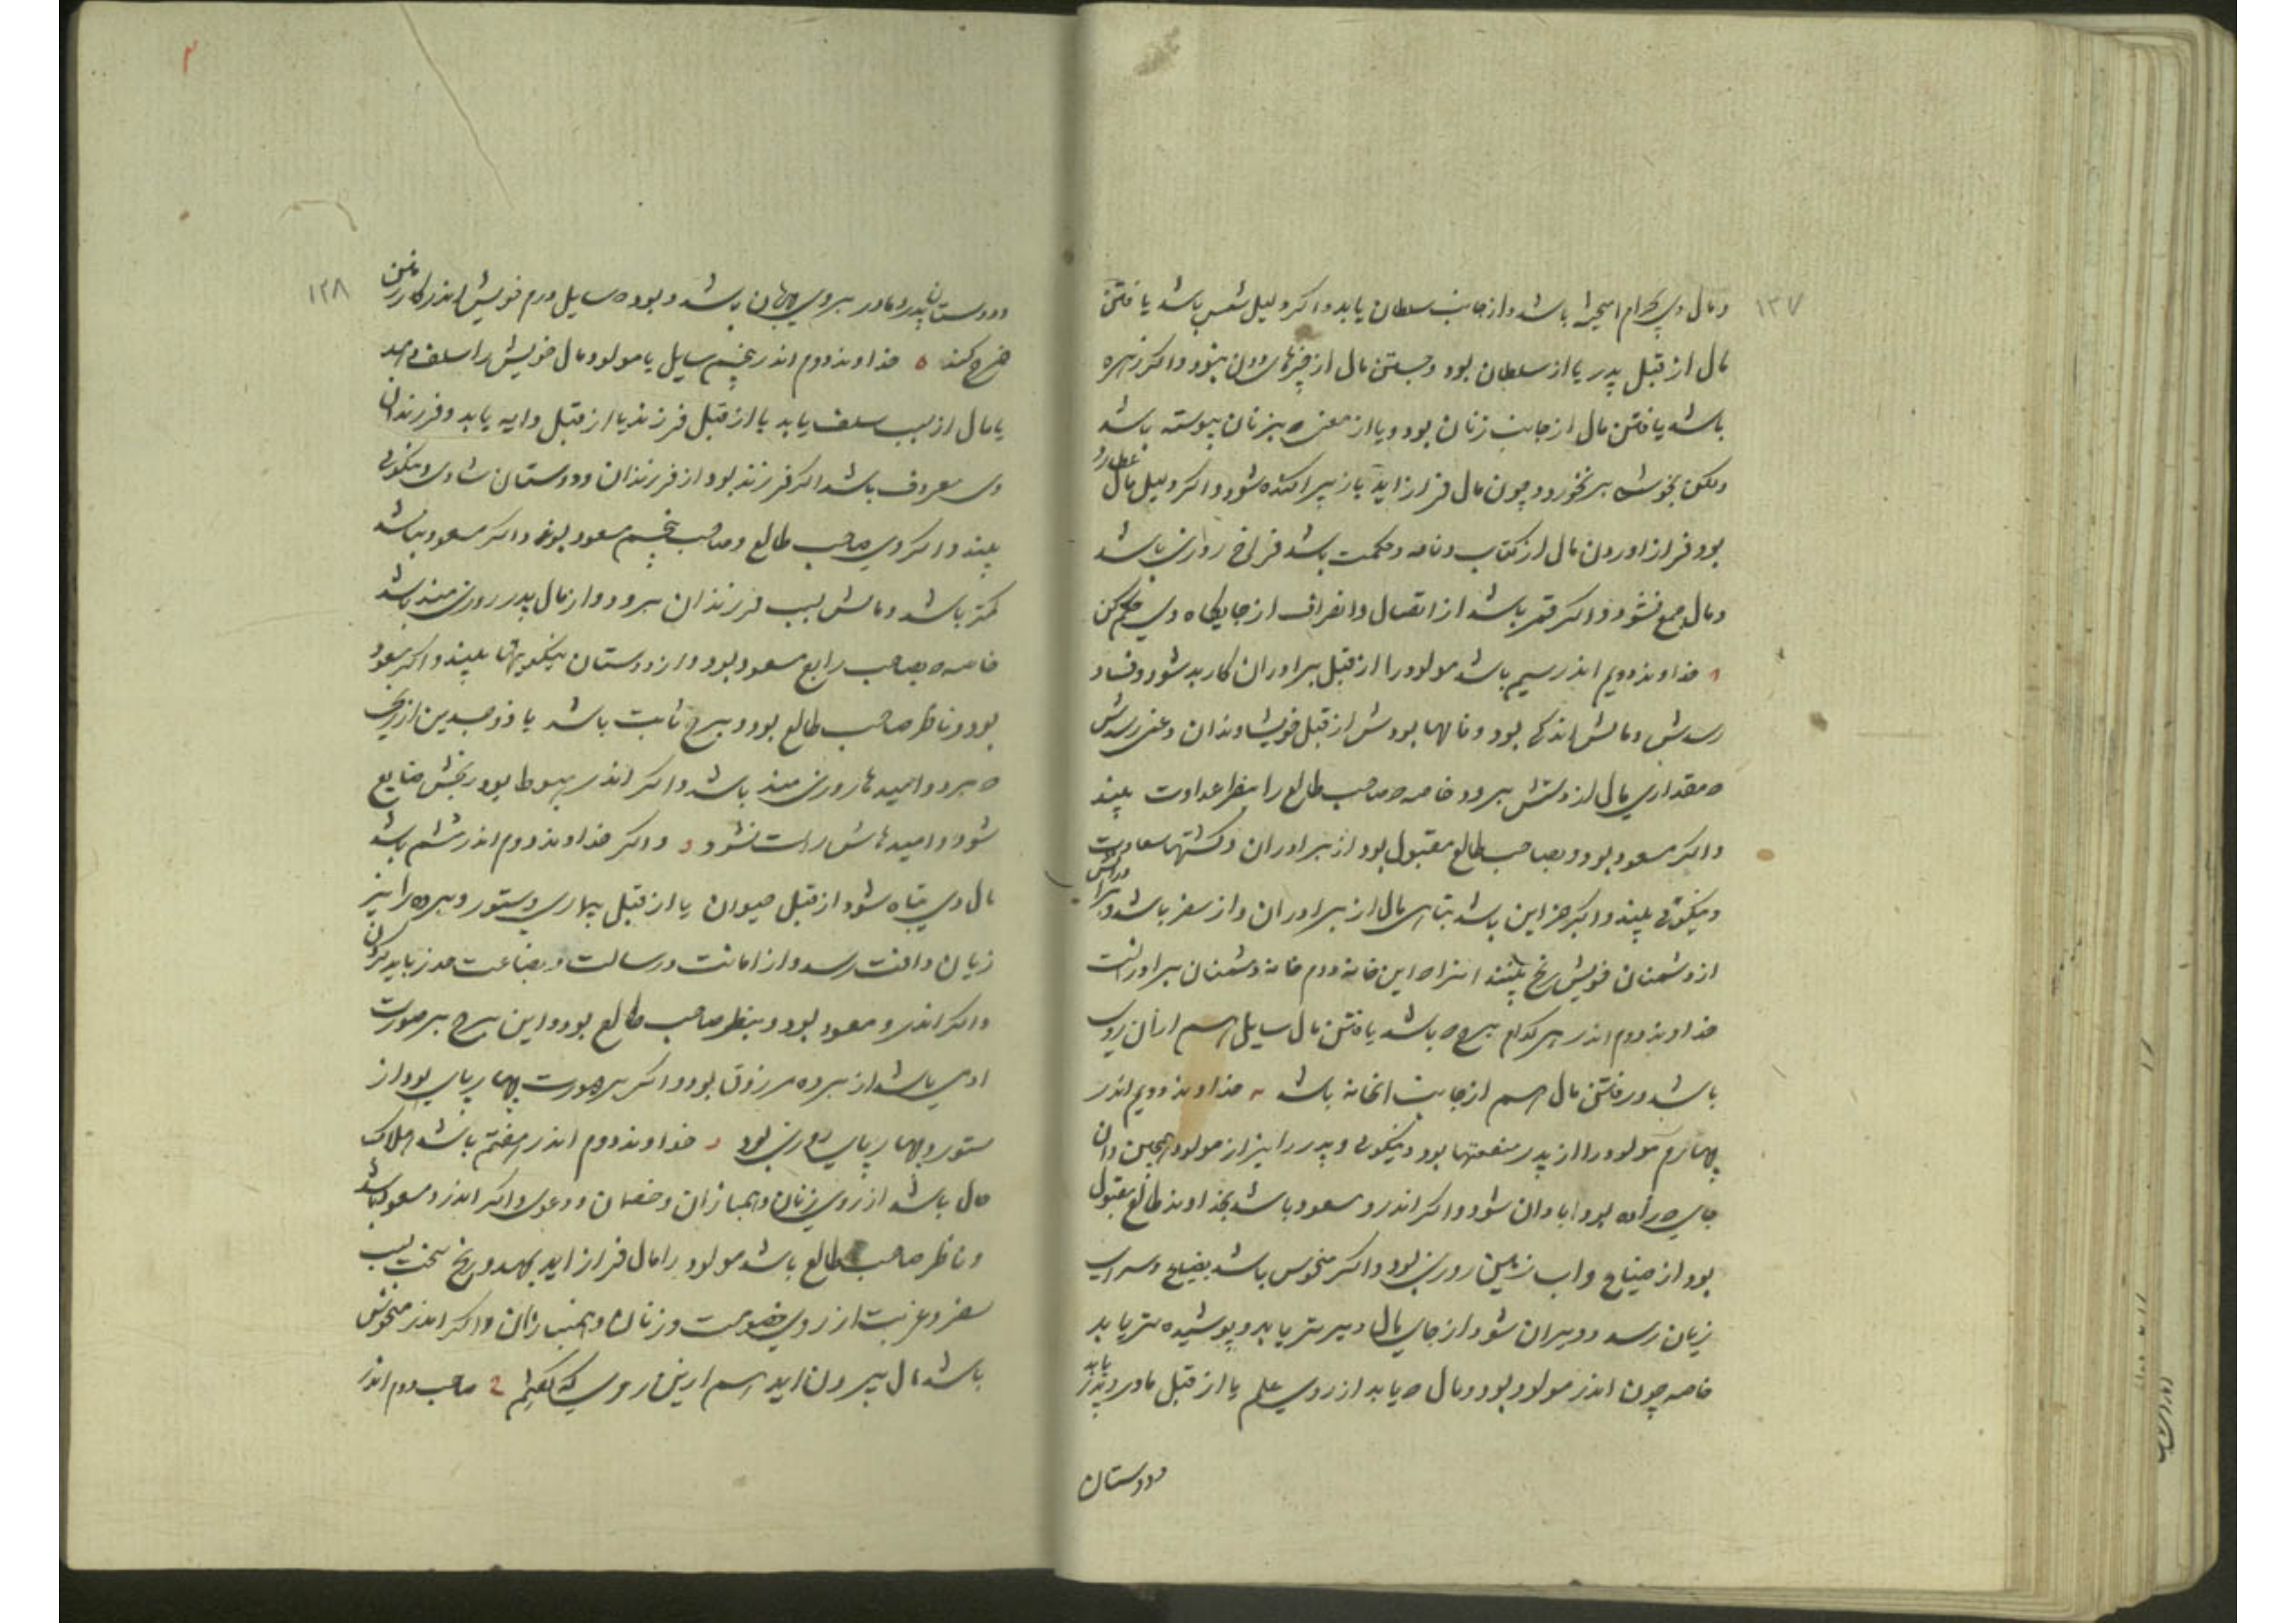 ۱۳۷
ومال وی بحرام امیخته باشد واز جانب سلطان یابد واکر دلیل شمس باشد یافتن
مال از قبل پدر یا از سلطان بود وجستن مال از چیزهای دون بنود واکر زهره
باشد یافتن مال از جانب زنان بود ویا از معنی بزنان پیوسته باشد
ولکن بخوشی برنخورد وچون مال فراز اید باز پراکنده شود واکر دلیل مال عطارد
بود فراز اوردن مال از کتاب ونامه وحکمت باشد فراخ روزی باشد
ومال جمع نشود واکر قمر باشد از اتصال وانصراف از جایکاه وی حکم کن
خداوند دویم اندر سیم باشد مولود را از قبل برادران کار بد شود وفساد
رسدش ومالش اندکی بود از قبل خویشاوندان وغمی رسدش
مقداری مال از دستش برود خاصه صاحب طالع را بنظر عداوت بیند
واکر مسعود بود وبصاحب طالع مقبول بود از برادران وکشتها سعادت
ونیکوئی بیند واکر جز این باشد تباهی مال از برادران واز سفر باشد
از دشمنان خویش رنج بیند این خانه دوم خانه دشمنان برادرانست
خداوند دوم اندر هر کدام برج باشد یافتن مال سایل هم از آن روی
باشد ورفتن مال هم از جانب انخانه باشد خداوند دویم اندر
چهارم مولود را از پدر منفعتها بود ونیکوئی وپدر را نیز از مولود همچنین وان
جای زاده بود ابادان شود واکر اندرو مسعود باشد بخداوند طالع مقبول
بود از ضیاع واب زمین روزی بود واکر منحوس باشد بضیاع وسرای
زیان رسد وویران شود از جای مال دیرتر یابد وپوشیده تر یابد
خاصه چون اندر مولود بود ومال یابد از روی علم یا از قبل مادر وپدر یابد
ودوستان
۱۳۸
ودوستان پدر ومادر بروی مهربان باشد وبود سایل درم خویش اندر کار زمین
خرج کند خداوند دوم اندر پنجم سایل یا مولود مال خویش را بسلف دهد
یا مال از سبب سلف یابد یا از قبل فرزند یا از قبل دایه یابد وفرزندان
وی معروف باشد اکر فرزند بود از فرزندان ودوستان شادی ونیکوئی
بیند واکر وی صاحب طالع وصاحب پنجم مسعود بود واکر مسعود نباشد
کمتر باشد ومالش بسبب فرزندان برود واز مال پدر روزی مند باشد
خاصه بصاحب رابع مسعود بود واز دوستان نیکوئیها بیند واکر مسعود
بود وناظر صاحب طالع بود وبرج ثابت باشد یا ذوجسدین
برد وامیدها روزی مند باشد واکر اندر هبوط بود رنجش ضایع
شود وامیدهاش راست نشود واکر خداوند دوم اندر ششم باشد
مال وی تباه شود از قبل حیوان یا از قبل بیماری وستور وبرده را نیز
زیان وافت رسد واز امانت ورسالت وبضاعت حذر باید کردن
واکر اندرو مسعود بود وبنظر صاحب طالع بود واین برج بر صورت
ادمی باشد از برده مرزوق بود واکر بر صورت چهار پای بود از
ستور وچهار پای روزی بود خداوند دوم اندر هفتم باشد هلاک
مال باشد از روی زنان وانبازان وخصمان ودعوی واکر اندرو مسعود باشد
وناظر صاحب طالع باشد مولود را مال فراز اید بجهد ورنج سخت بسبب
سفر وغربت از روی خصومت وزنان وانبازان واکر اندر منحوس
باشد مال بیرون اید هم ازین روی که کفتم صاحب دوم اندر